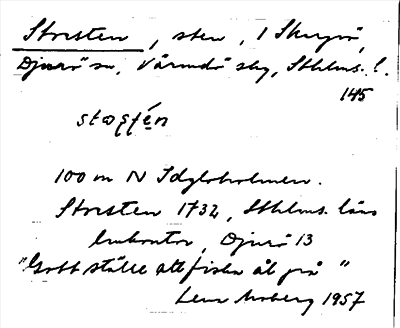 Storsten, sten, 1 Skarpö,
Djurö sn, Värmdö skg, Sthlms. l.
145
100 m N Idgloholmen.
Storsten 1732, Sthlms. läns
lankontor, Djurö 13
"Gott ställe att fiska ål på"
Lena Moberg 1957